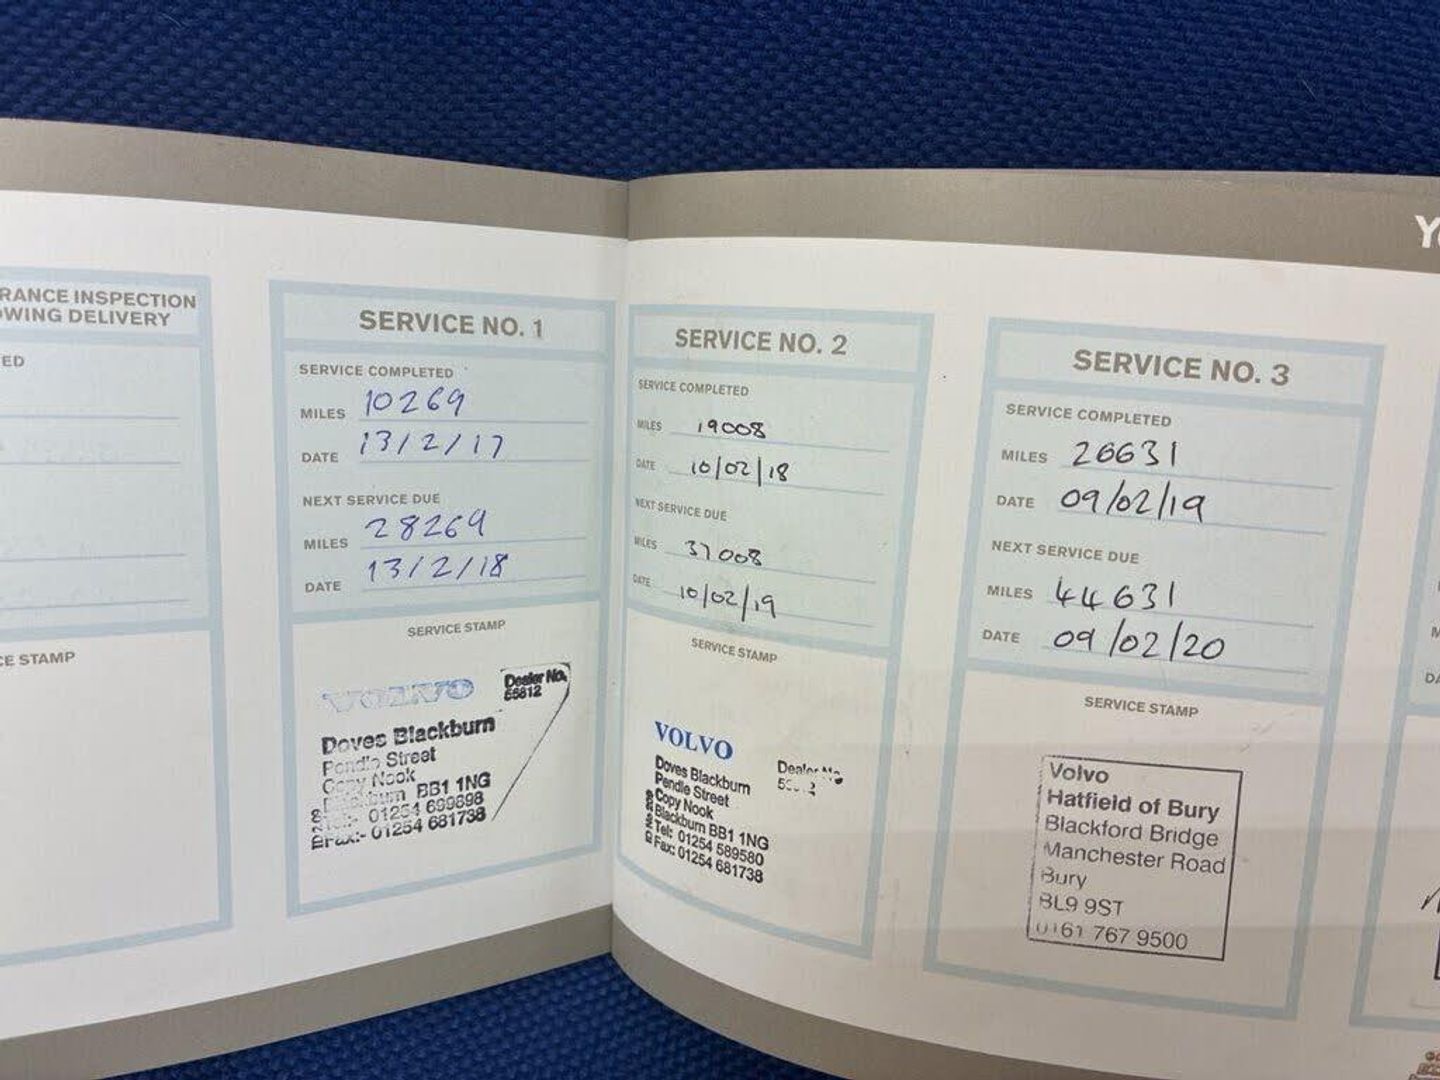 RANCE INSPECTION
OWING DELIVERY
ED
CE STAMP
SERVICE NO. 1
SERVICE COMPLETED
MILES 10269
DATE 13/2/17
NEXT SERVICE DUE
MILES 28269
DATE 13/2/18
SERVICE STAMP
VOLVO
Dealer No.
55812
Doves Blackburn
Pendle Street
Copy Nook
Blackburn BB1 1NG
Tel:- 01254 699898
Fax:- 01254 681738
SERVICE NO. 2
SERVICE COMPLETED
MILES 19008
DATE 10/02/18
NEXT SERVICE DUE
MILES 37008
DATE 10/02/19
SERVICE STAMP
VOLVO
Dealer No
Doves Blackburn
Pendle Street
Copy Nook
Blackburn BB1 1NG
Tel: 01254 589580
Fax: 01254 681738
Y
SERVICE NO. 3
SERVICE COMPLETED
MILES 26631
DATE 09/02/19
NEXT SERVICE DUE
MILES 44631
DATE 09/02/20
SERVICE STAMP
Volvo
Hatfield of Bury
Blackford Bridge
Manchester Road
Bury
BL9 9ST
0161 767 9500
M
DA